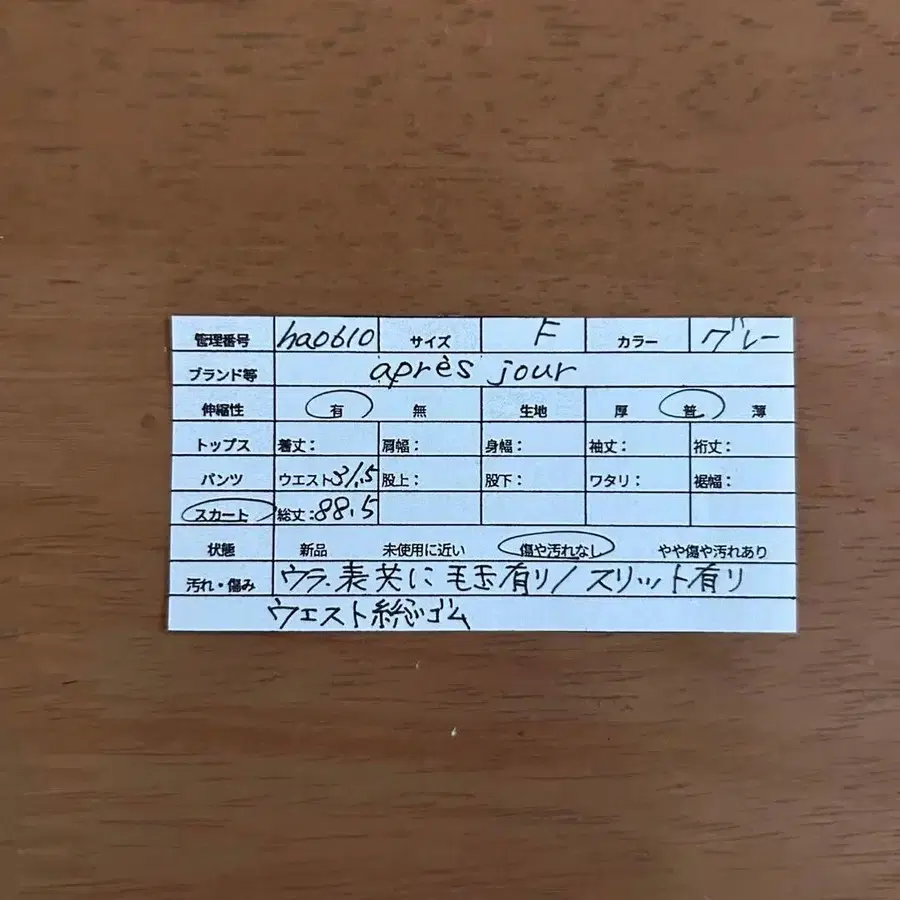 管理番号 ha0610 サイズ F カラー グレー
ブランド等 après jour
伸縮性 有 無 生地 厚 普 薄
トップス 着丈: 肩幅: 身幅: 袖丈: 裄丈:
パンツ ウエスト31.5 股上: 股下: ワタリ: 裾幅:
スカート 総丈:88.5
状態 新品 未使用に近い 傷や汚れなし やや傷や汚れあり
汚れ・傷み ウラ.表共に毛玉有り/スリット有り
ウエスト総ゴム